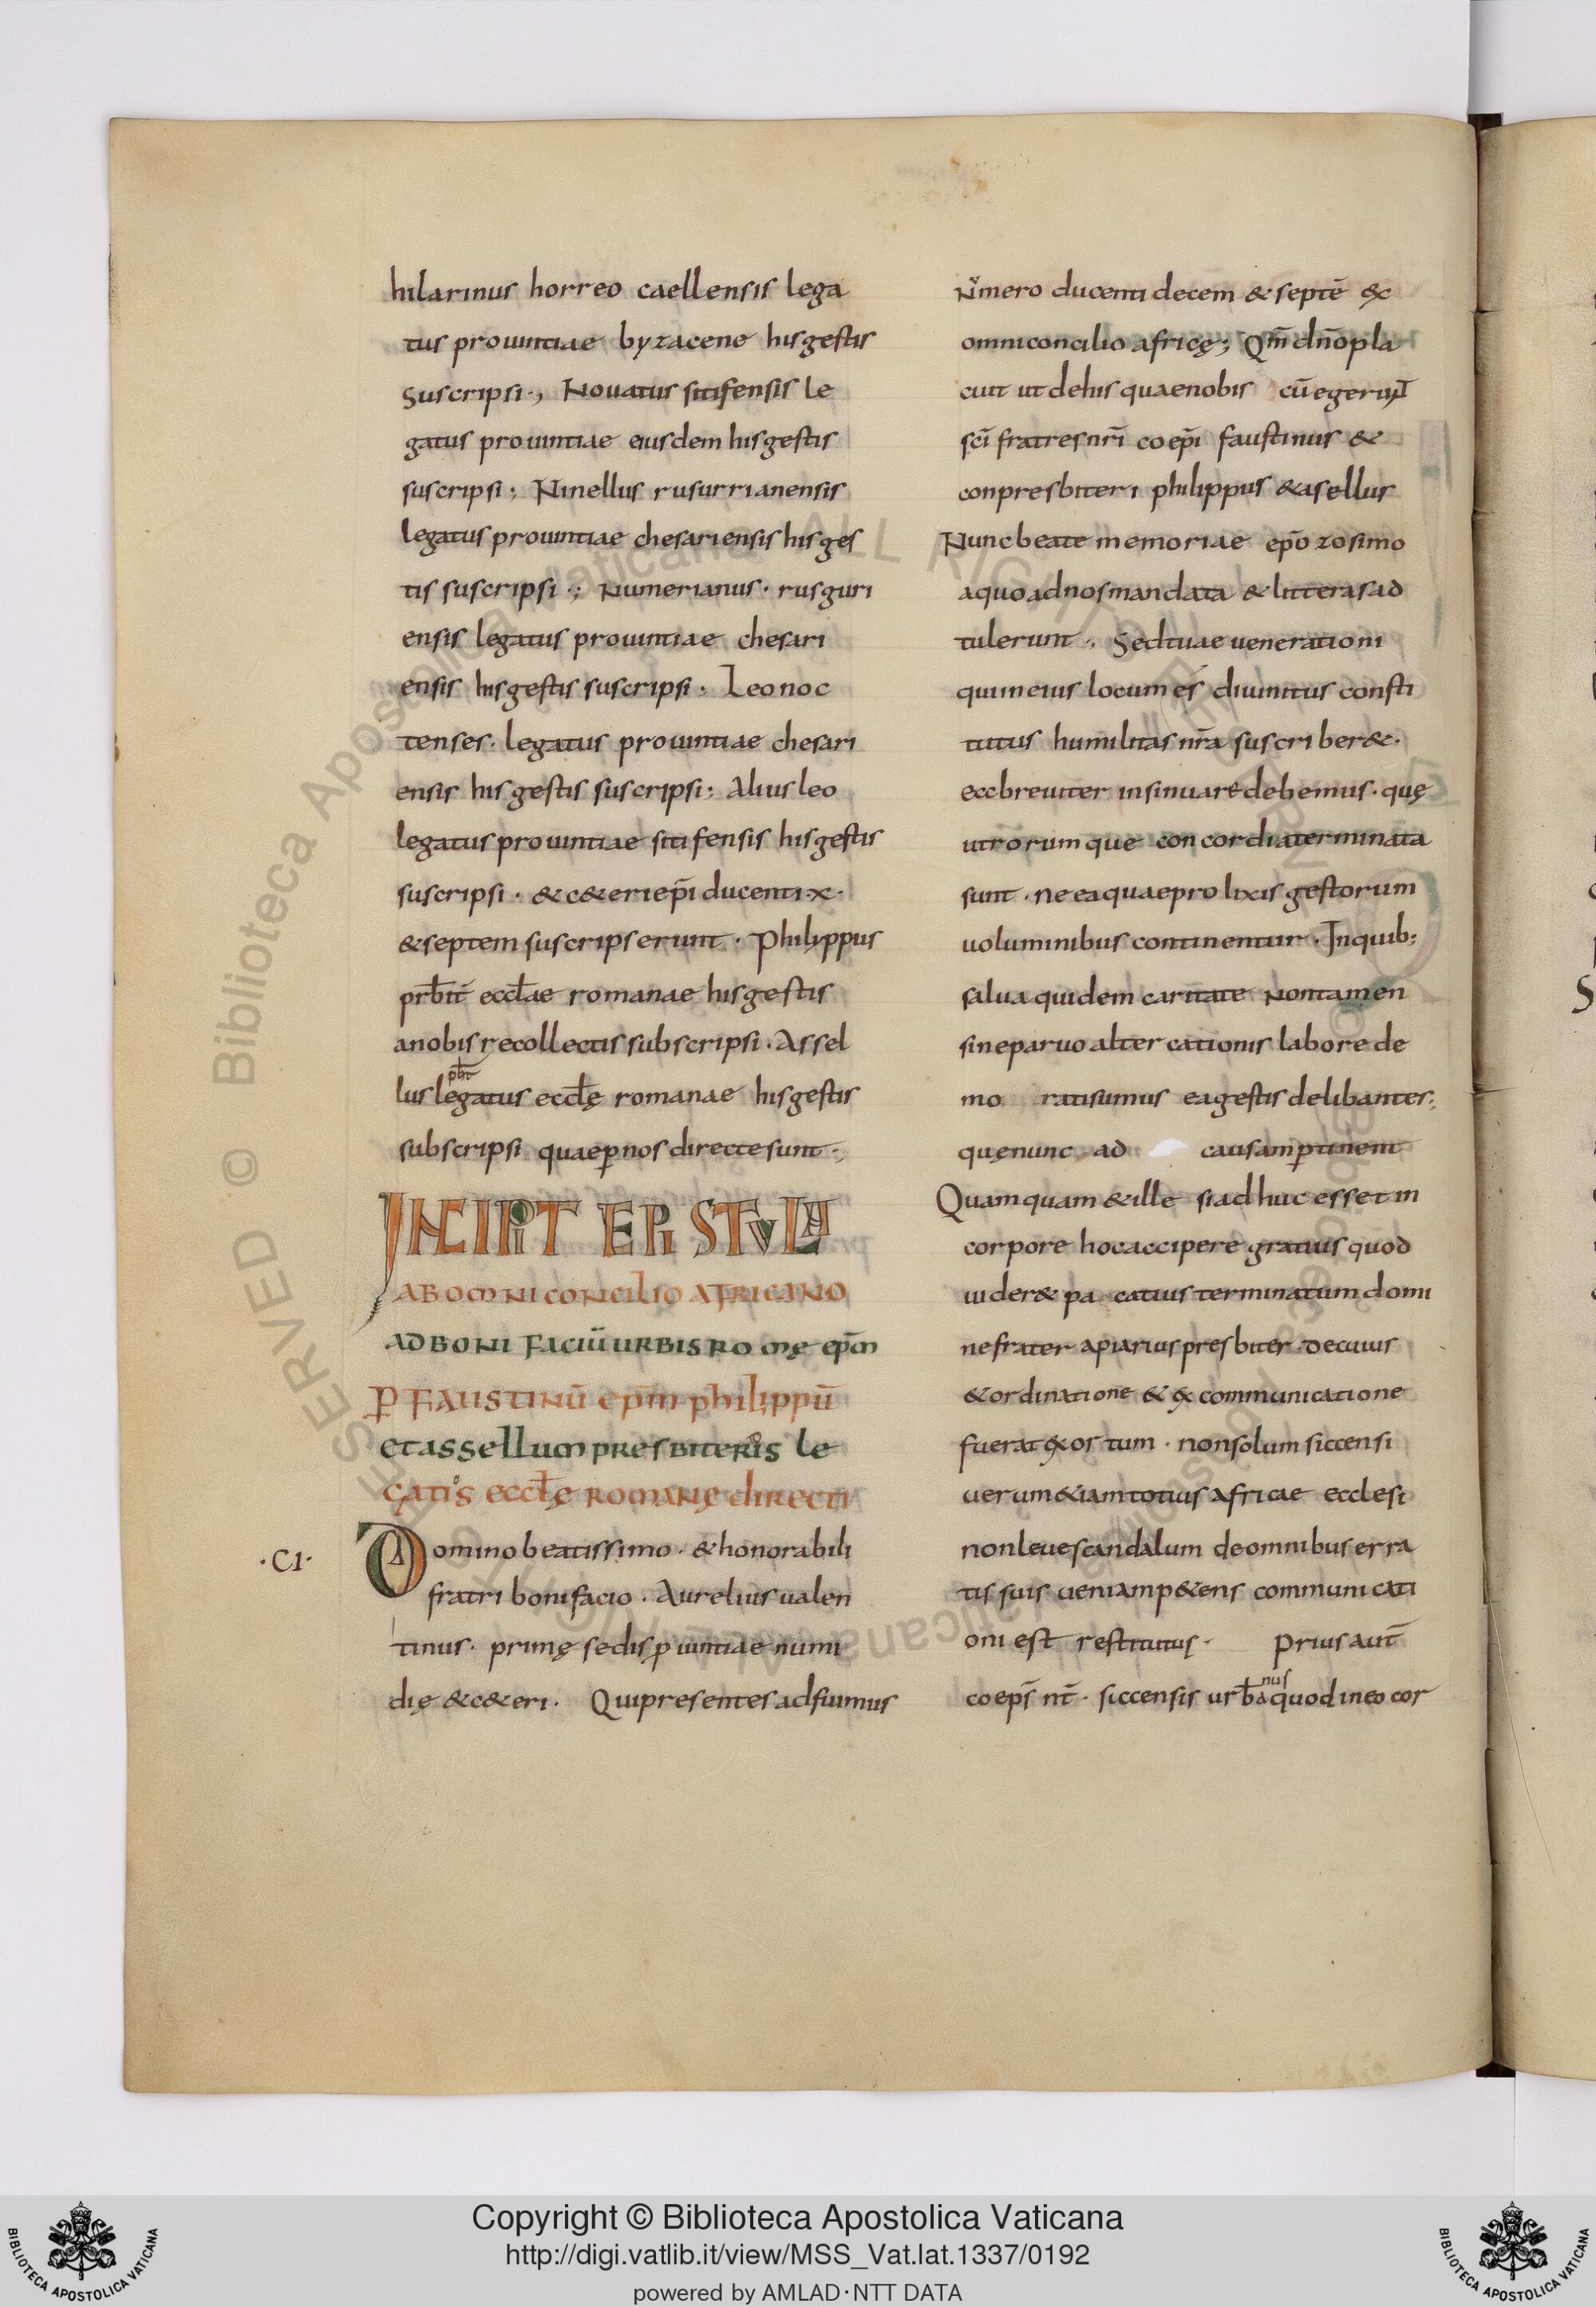 hilarinus horreo caellensis lega
tus prouintiae byzacene his gestis
suscripsi·, Nouatus sitifensis le
gatus prouintiae eiusdem his gestis
suscripsi; Ninellus rusurrianensis
legatus prouintiae chesariensis his ges
tis suscripsi·; Numerianus· rusguri
ensis legatus prouintiae chesari
ensis his gestis suscripsi· Leo noc
tenses· legatus prouintiae chesari
ensis his gestis suscripsi; Alius leo
legatus prouintiae sitifensis his gestis
suscripsi· & c&eri ep̄i ducenti·x·
& septem suscripserunt· Philyppus
prb̄it̄ eccl̄ae romanae his gestis
a nobis recollectis subscripsi· Assel
pb̄t
lus legatus eccl̄ę romanae his gestis
subscripsi quae ꝑ nos directe sunt·,
INCIPIT EPISTULA
AB OMNI CONCILIO AFRICANO
AD BONI FACIŪ URBIS ROMĘ EP̄M
ꝑ FAUSTINŪ ep̄m philippū
et assellum presbiteris le
gatis eccl̄ę romanę directi
·CI·
Domino beatissimo· & honorabili
fratri bonifacio· Aurelius ualen
tinus· primę sedis ꝓuintiae numi
dię & c&eri· Qui presentes adfuimus
Numero ducenti decem & septē ex
omni concilio africę; Qm̄ dn̄o pla
cuit ut de his quae nobis cū egerunt
sc̄i fratres nr̄i coep̄i faustinus &
conpresbiteri philippus & asellus
Nunc beate memoriae ep̄o zosimo
a quo ad nos mandata & litteras ad
tulerunt·, Sed tuae uenerationi
qui in eius locum es diuinitus consti
tutus humilitas nr̄a suscriber&·
ecc breuiter insinuare debemus· quę
utrorumque concordia terminata
sunt· ne ea quae prolixis gestorum
uoluminibus continentur· In quib;
salua quidem caritate Non tamen
sine paruo altercationis labore de
mo ratisumus ea gestis delibantes;
quę nunc ad causam ꝑtinent
Quamquam & ille si adhuc esset in
corpore hoc accipere gratius quod
uider& pa catius terminatum domi
ne frater apiarius presbiter· De cuius
& ordinatione & excommunicatione
fuerat exos tum· non solum siccensi
uerum &iam totius africae ecclesi
non leue scandalum de omnibus erra
tis suis ueniam p&ens communicati
oni est restitutus· Prius aut̄
nus
coep̄s nt̄· siccensis urb̄a quod in eo cor
Copyright © Biblioteca Apostolica Vaticana
http://digi.vatlib.it/view/MSS_Vat.lat.1337/0192
powered by AMLAD·NTT DATA
BIBLIOTECA APOSTOLICA VATICANA
BIBLIOTECA APOSTOLICA VATICANA